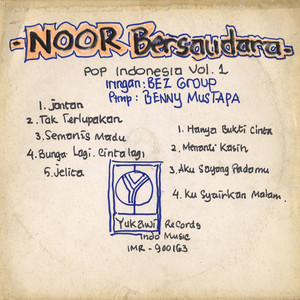 -NOOR Bersaudara-
Pop Indonesia Vol. 1
Iringan: BEZ GROUP
Pimp: BENNY MUSTAPA
1. Jantan
2. Tak Terlupakan
3. Semanis Madu
4. Bunga Lagi. Cinta lagi
5. Jelita
1. Hanya Bukti Cinta
2. Menanti Kasih
3. Aku Sayang Padamu
4. Ku Syairkan Malam.
Yukawi Records
Indo Music
IMR - 900163